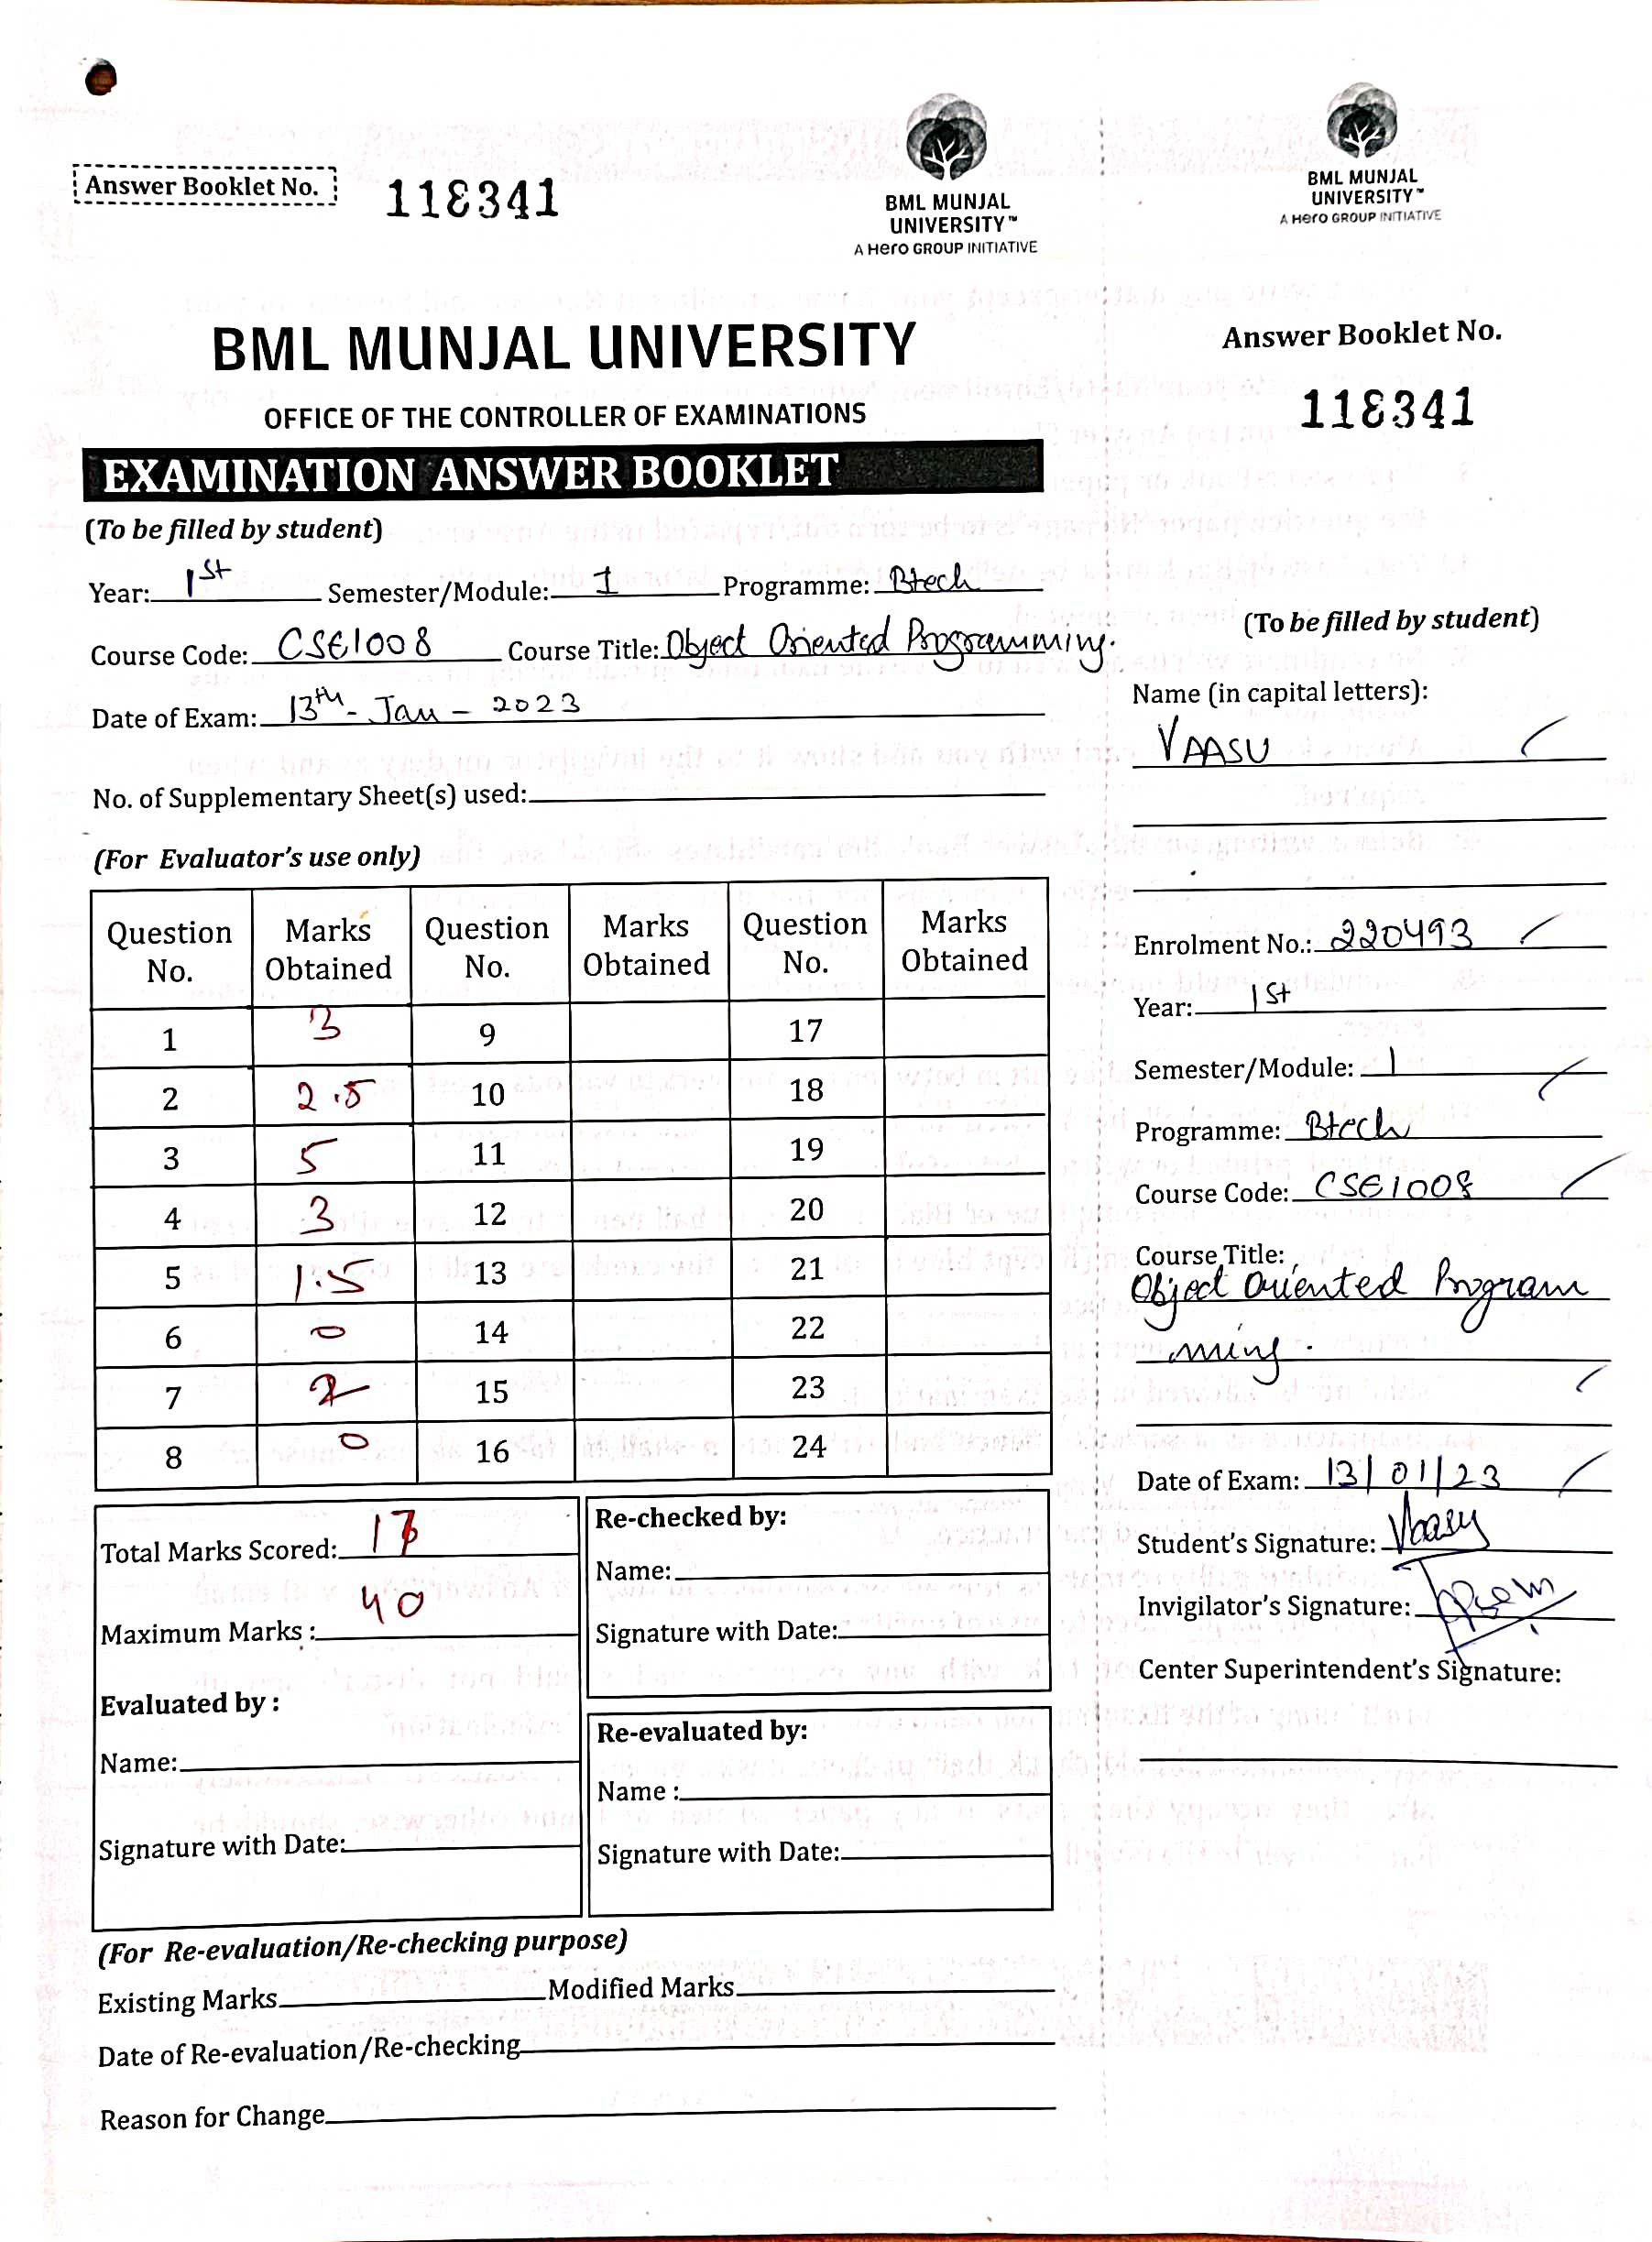 Answer Booklet No.
118341
BML MUNJAL
UNIVERSITY™
A Hero GROUP INITIATIVE
BML MUNJAL UNIVERSITY
OFFICE OF THE CONTROLLER OF EXAMINATIONS
EXAMINATION ANSWER BOOKLET
(To be filled by student)
Year: 1st Semester/Module: I Programme: Btech
Course Code: CSE1008 Course Title: Object Oriented Programming.
Date of Exam: 13th - Jan - 2023
No. of Supplementary Sheet(s) used:
(For Evaluator's use only)
Question No. Marks Obtained Question No. Marks Obtained Question No. Marks Obtained
1 3 9 17
2 2.5 10 18
3 5 11 19
4 3 12 20
5 1.5 13 21
6 0 14 22
7 2 15 23
8 0 16 24
Total Marks Scored: 17
Maximum Marks : 40
Evaluated by :
Name:
Signature with Date:
Re-checked by:
Name:
Signature with Date:
Re-evaluated by:
Name :
Signature with Date:
(For Re-evaluation/Re-checking purpose)
Existing Marks Modified Marks
Date of Re-evaluation/Re-checking
Reason for Change
BML MUNJAL
UNIVERSITY™
A Hero GROUP INITIATIVE
Answer Booklet No.
118341
(To be filled by student)
Name (in capital letters):
VAASU
Enrolment No.: 220493
Year: 1st
Semester/Module: 1
Programme: Btech
Course Code: CSE1008
Course Title:
Object Oriented Program
ming.
Date of Exam: 13/01/23
Student's Signature: Vaasu
Invigilator's Signature:
Center Superintendent's Signature: